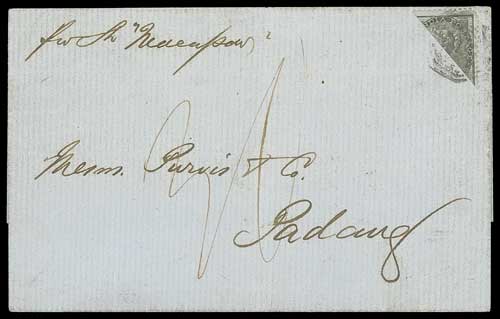 per Sr "Macassar"
Messrs. Purvis & Co.
Padang